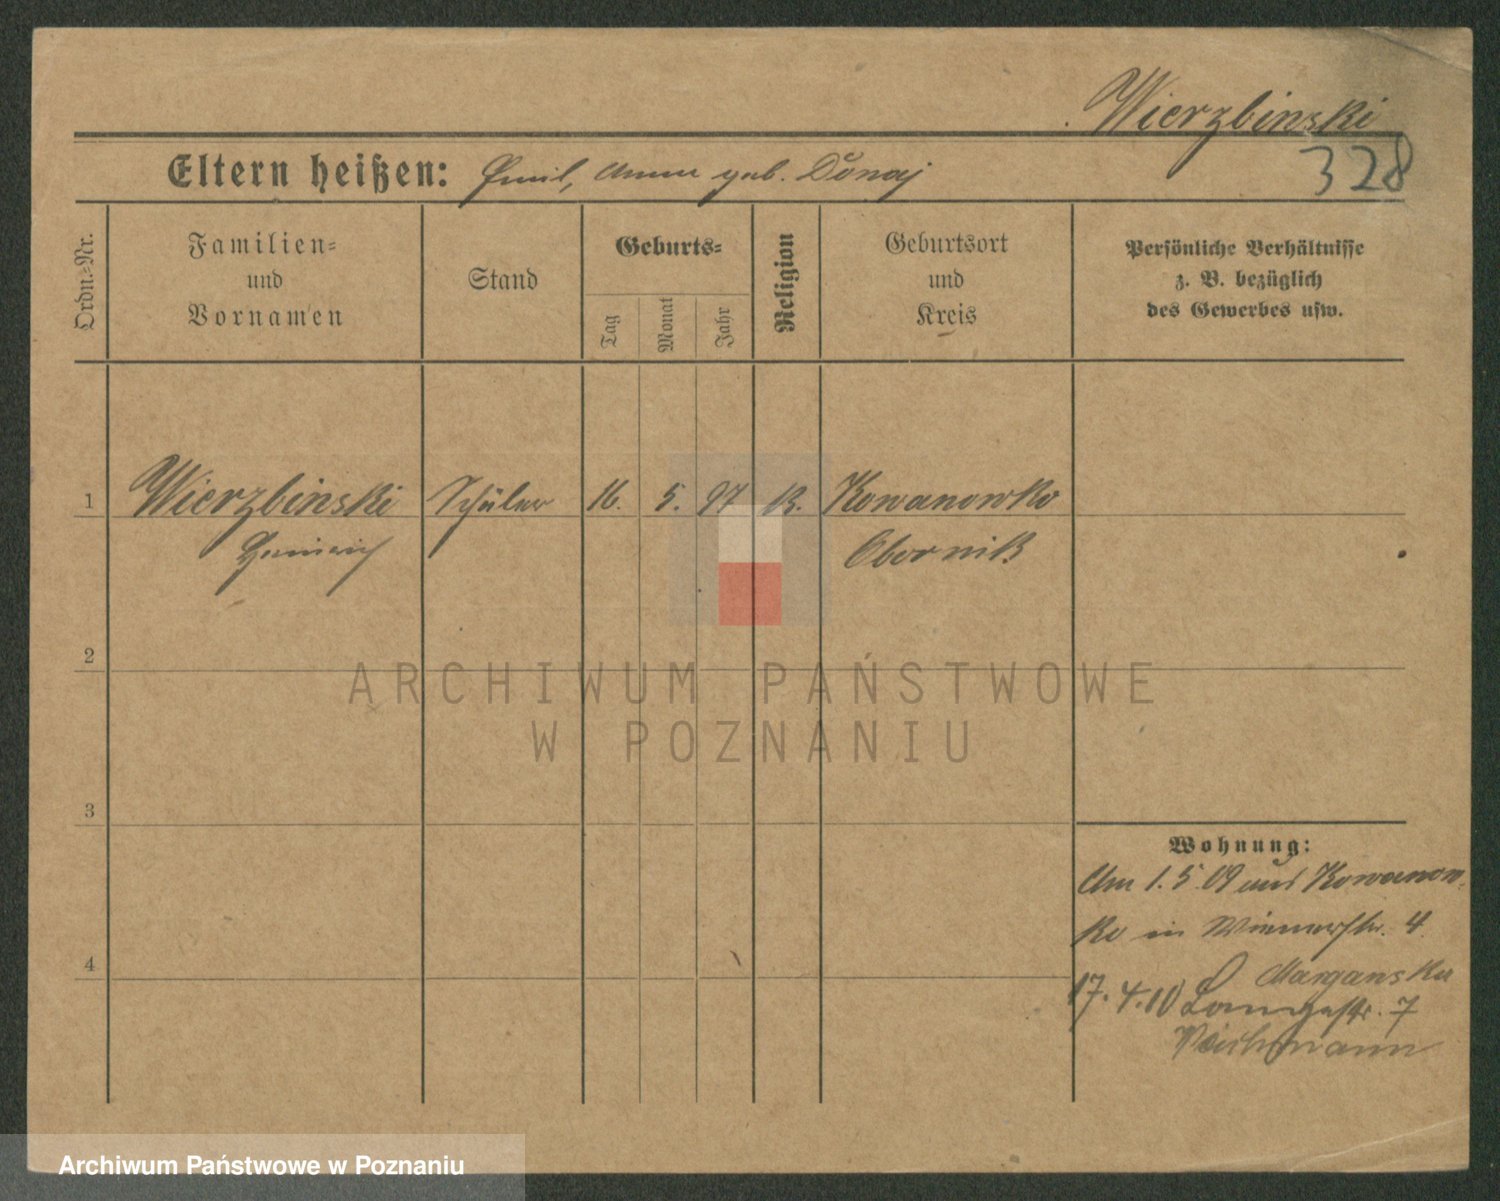 Wierzbinski
328
Eltern heißen: Emil, Anna geb. Dŭnaj
Ordn.-Nr.
Familien-
und
Vornamen
Stand
Geburts-
Tag
Monat
Jahr
Religion
Geburtsort
und
Kreis
Persönliche Verhältnisse
z. B. bezüglich
des Gewerbes usw.
1 Wierzbinski Schüler 16. 5. 97 K. Kowanowko
Heinrich Obornik
2
3
4
Wohnung:
Am 1. 5. 09 aus Kowanow-
ko in Wienerstr. 4
17. 4. 10 Langestr. 7
ARCHIWUM PAŃSTWOWE
W POZNANIU
Archiwum Państwowe w Poznaniu